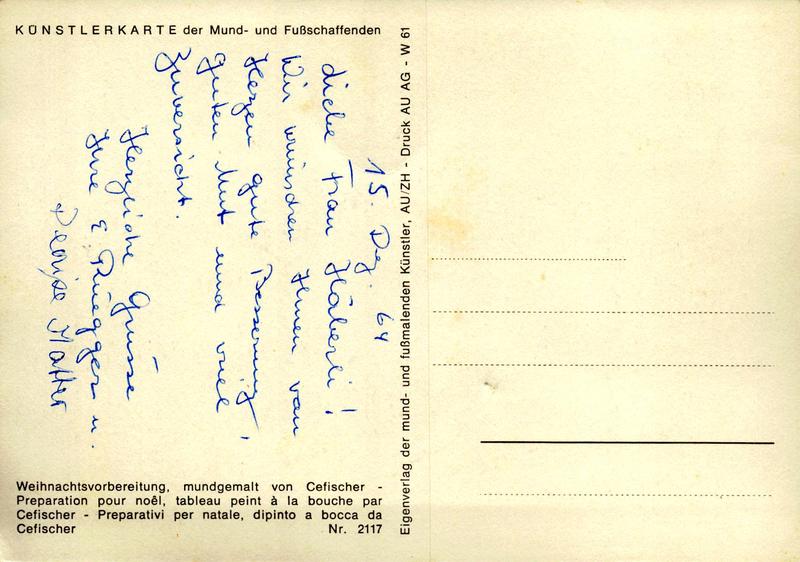 KÜNSTLERKARTE der Mund- und Fußschaffenden
15. Dez. 64
Liebe Frau Häberli!
Wir wünschen Ihnen von
Herzen gute Besserung,
guten Mut und viel
Zuversicht.
Herzliche Grüsse
Ihre E. Rüegger u.
Denise Matter
Weihnachtsvorbereitung, mundgemalt von Cefischer -
Preparation pour noêl, tableau peint à la bouche par
Cefischer - Preparativi per natale, dipinto a bocca da
Cefischer Nr. 2117
Eigenverlag der mund- und fußmalenden Künstler, AU/ZH - Druck AU AG - W 61